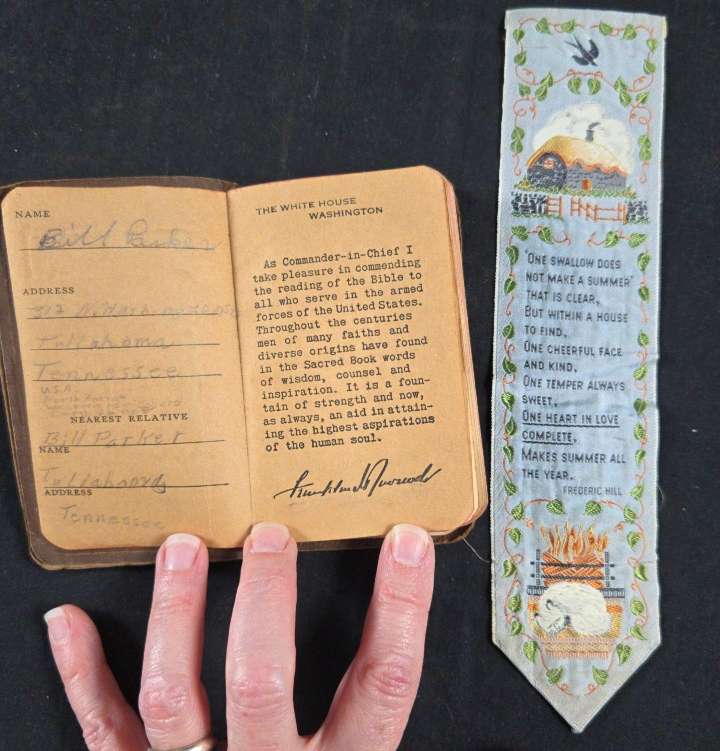 NAME
Bill Parker
ADDRESS
317 N.
Tullahoma
Tennessee
U.S.A.
NEAREST RELATIVE
Bill Parker
NAME
Tullahoma
ADDRESS
Tennessee
THE WHITE HOUSE
WASHINGTON
As Commander-in-Chief I
take pleasure in commending
the reading of the Bible to
all who serve in the armed
forces of the United States.
Throughout the centuries
men of many faiths and
diverse origins have found
in the Sacred Book words
of wisdom, counsel and
inspiration. It is a foun-
tain of strength and now,
as always, an aid in attain-
ing the highest aspirations
of the human soul.
Franklin D Roosevelt
"ONE SWALLOW DOES
NOT MAKE A SUMMER"
THAT IS CLEAR,
BUT WITHIN A HOUSE
TO FIND,
ONE CHEERFUL FACE
AND KIND,
ONE TEMPER ALWAYS
SWEET,
ONE HEART IN LOVE
COMPLETE,
MAKES SUMMER ALL
THE YEAR.
FREDERIC HILL